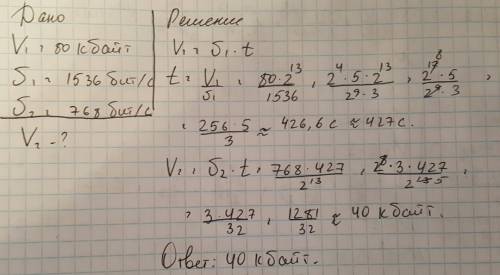 Дано
V₁ = 80 кбайт
δ₁ = 1536 бит/с
δ₂ = 768 бит/с
V₂ - ?
Решение
V₁ = δ₁ · t
t = V₁/δ₁ = 80·2¹³/1536 = 2⁴·5·2¹³/2⁹·3 = 2¹⁷8·5/2⁹·3 =
= 256·5/3 ≈ 426,6 с ≈ 427 с.
V₂ = δ₂ · t = 768·427/2¹³ = 2⁸·3·427/2¹³ 5 =
= 3·427/32 = 1281/32 ≈ 40 кбайт.
Ответ: 40 кбайт.